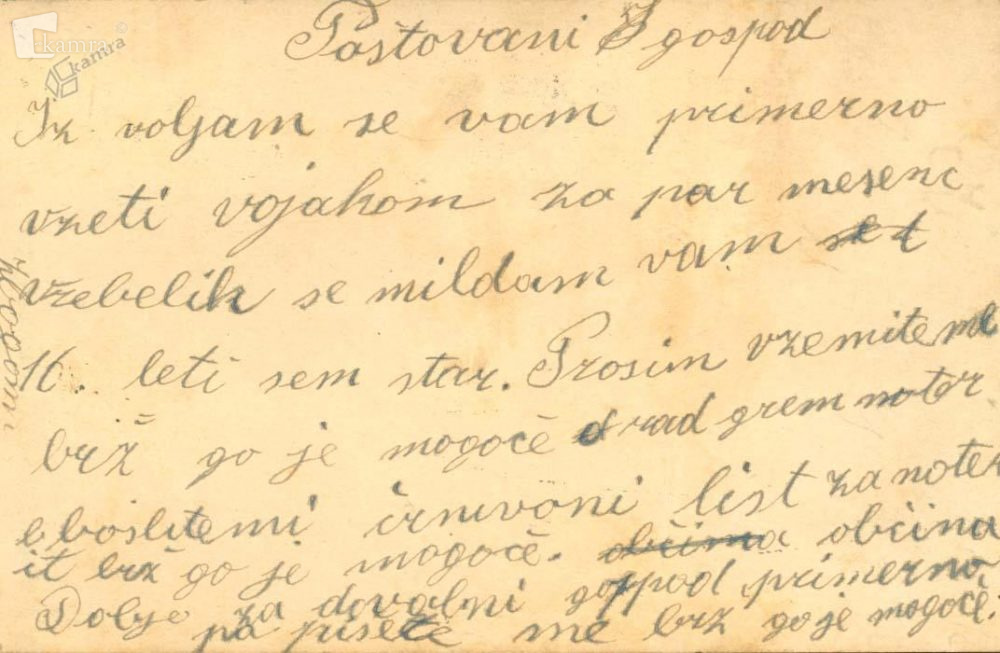 kamra
kamra
Poštovani gospod
Iz voljam se vam primerno
vzeti vojakom za par mesenc
vzebelih se mildam vam
16. leti sem star. Prosim vzemite me
brž go je mogoče rad grem noter
list za noter
it brž go je mogoče. občina občina
Dolje za dovolni gospod primerno
pa pišete me brz go je mogoče.